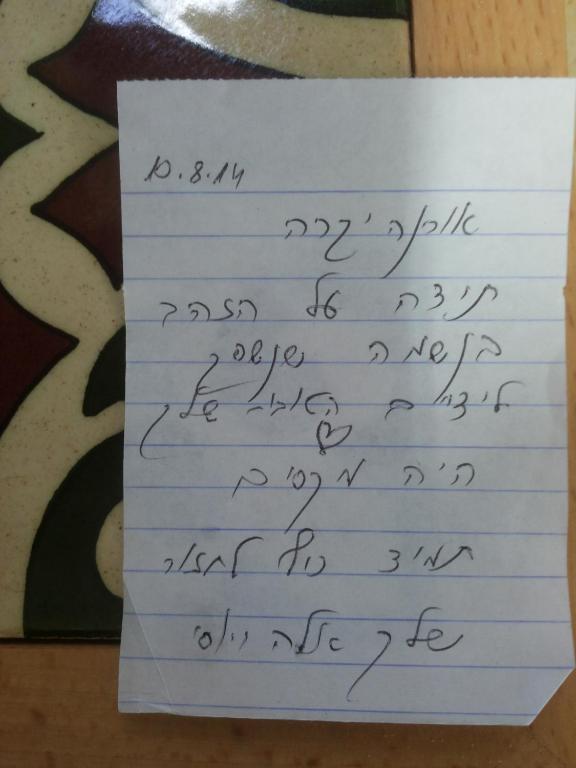 10.8.14
אורנה יקרה
תודה על הזהב
בנשמה שנשפך
לידיים הטובות שלך
היה מקסים
תמיד כיף לחזור
שלך אלה ויוסי